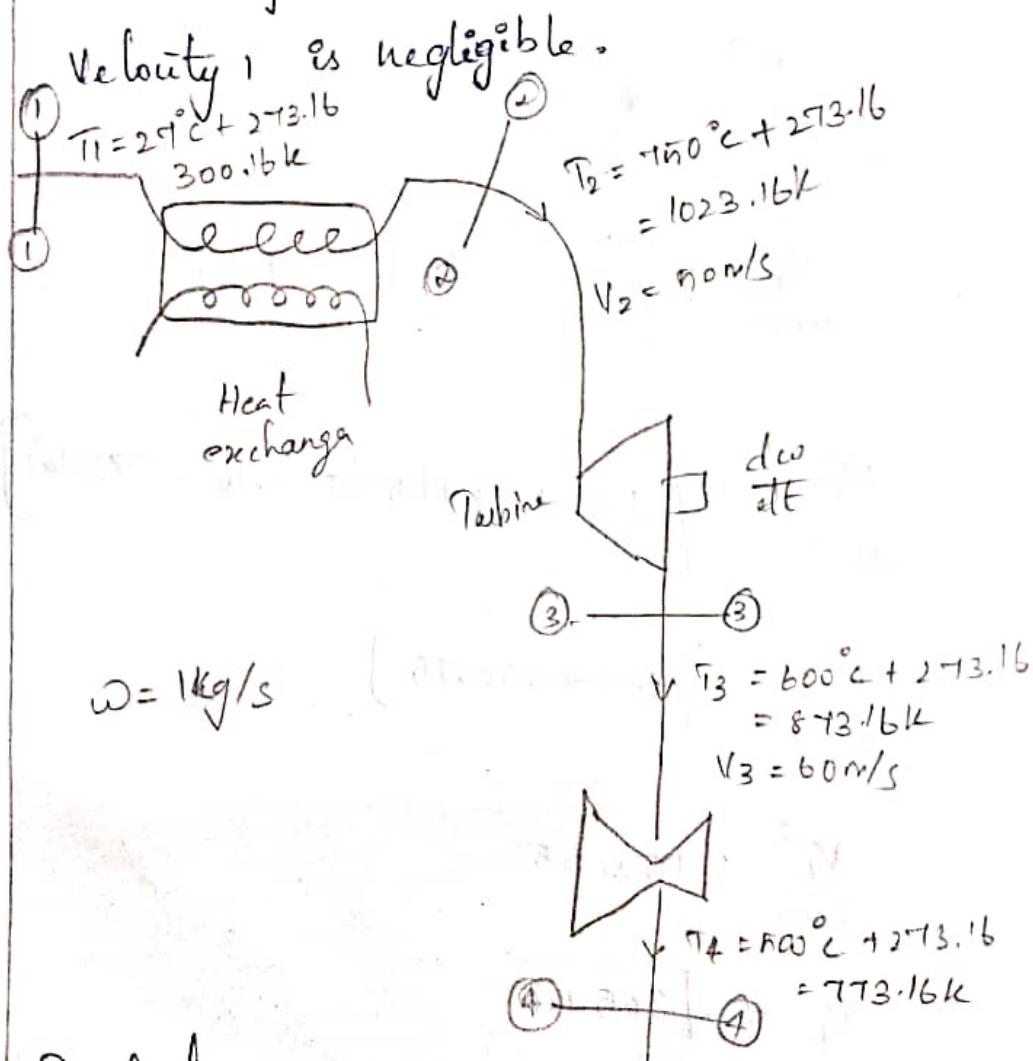 Velouity 1 is negligible.
① ②
T1 = 27°C + 273.16
300.16K
① ②
T2 = 750°C + 273.16
= 1023.16K
V2 = 50 m/s
Heat
exchanga
Turbine
dw
dt
③ ③
ω = 1kg/s
T3 = 600°C + 273.16
= 873.16K
V3 = 60 m/s
T4 = 500°C + 273.16
= 773.16K
④ ④